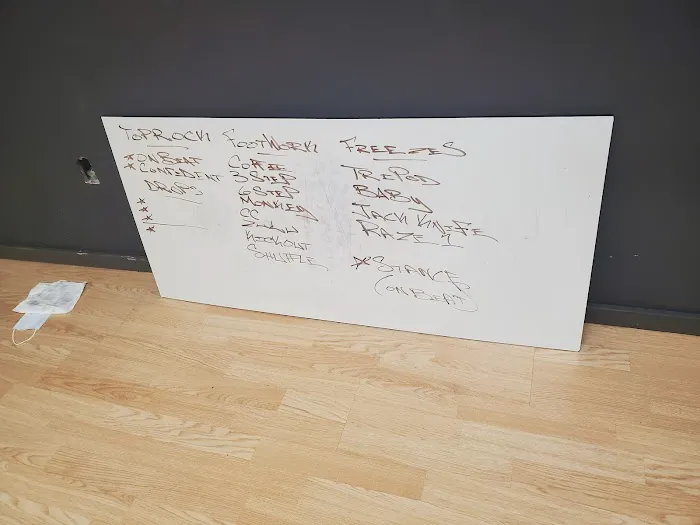 TOPROCK
* ON BEAT
* CONFIDENT
DROPS
*
*
*
FOOTWORK
COFFEE
3 STEP
6 STEP
MONKEY
CC
ZULU
KICKOUT
SHUFFLE
FREEZES
TRIPOD
BABY
JACK KNIFE
RAZE 1
* STANCE
(ON BEAT)